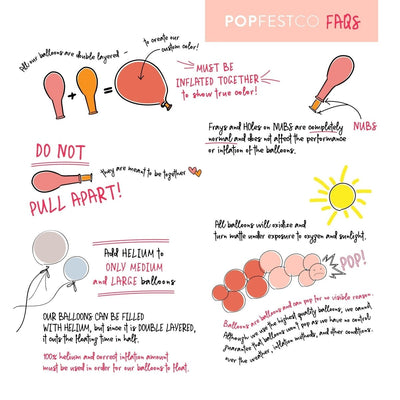 POPFESTCO FAQS
All our balloons are double layered
to create our
custom color!
MUST BE
INFLATED TOGETHER
to show true color!
NUBS
Frays and Holes on NUBS are completely
normal and does not affect the performance
or inflation of the balloons.
DO NOT
they are meant to be together
PULL APART!
All balloons will oxidize and
turn matte under exposure to oxygen and sunlight.
Add HELIUM to
ONLY MEDIUM
and LARGE balloons
POP!
OUR BALLOONS CAN BE FILLED
WITH HELIUM, but since it is DOUBLE LAYERED,
it cuts the floating time in half.
100% helium and correct inflation amount
must be used in order for our balloons to float.
Balloons are balloons and can pop for no visible reason.
Although we use the highest quality balloons, we cannot
guarantee that balloons won't pop as we have no control
over the weather, inflation methods, and other conditions.